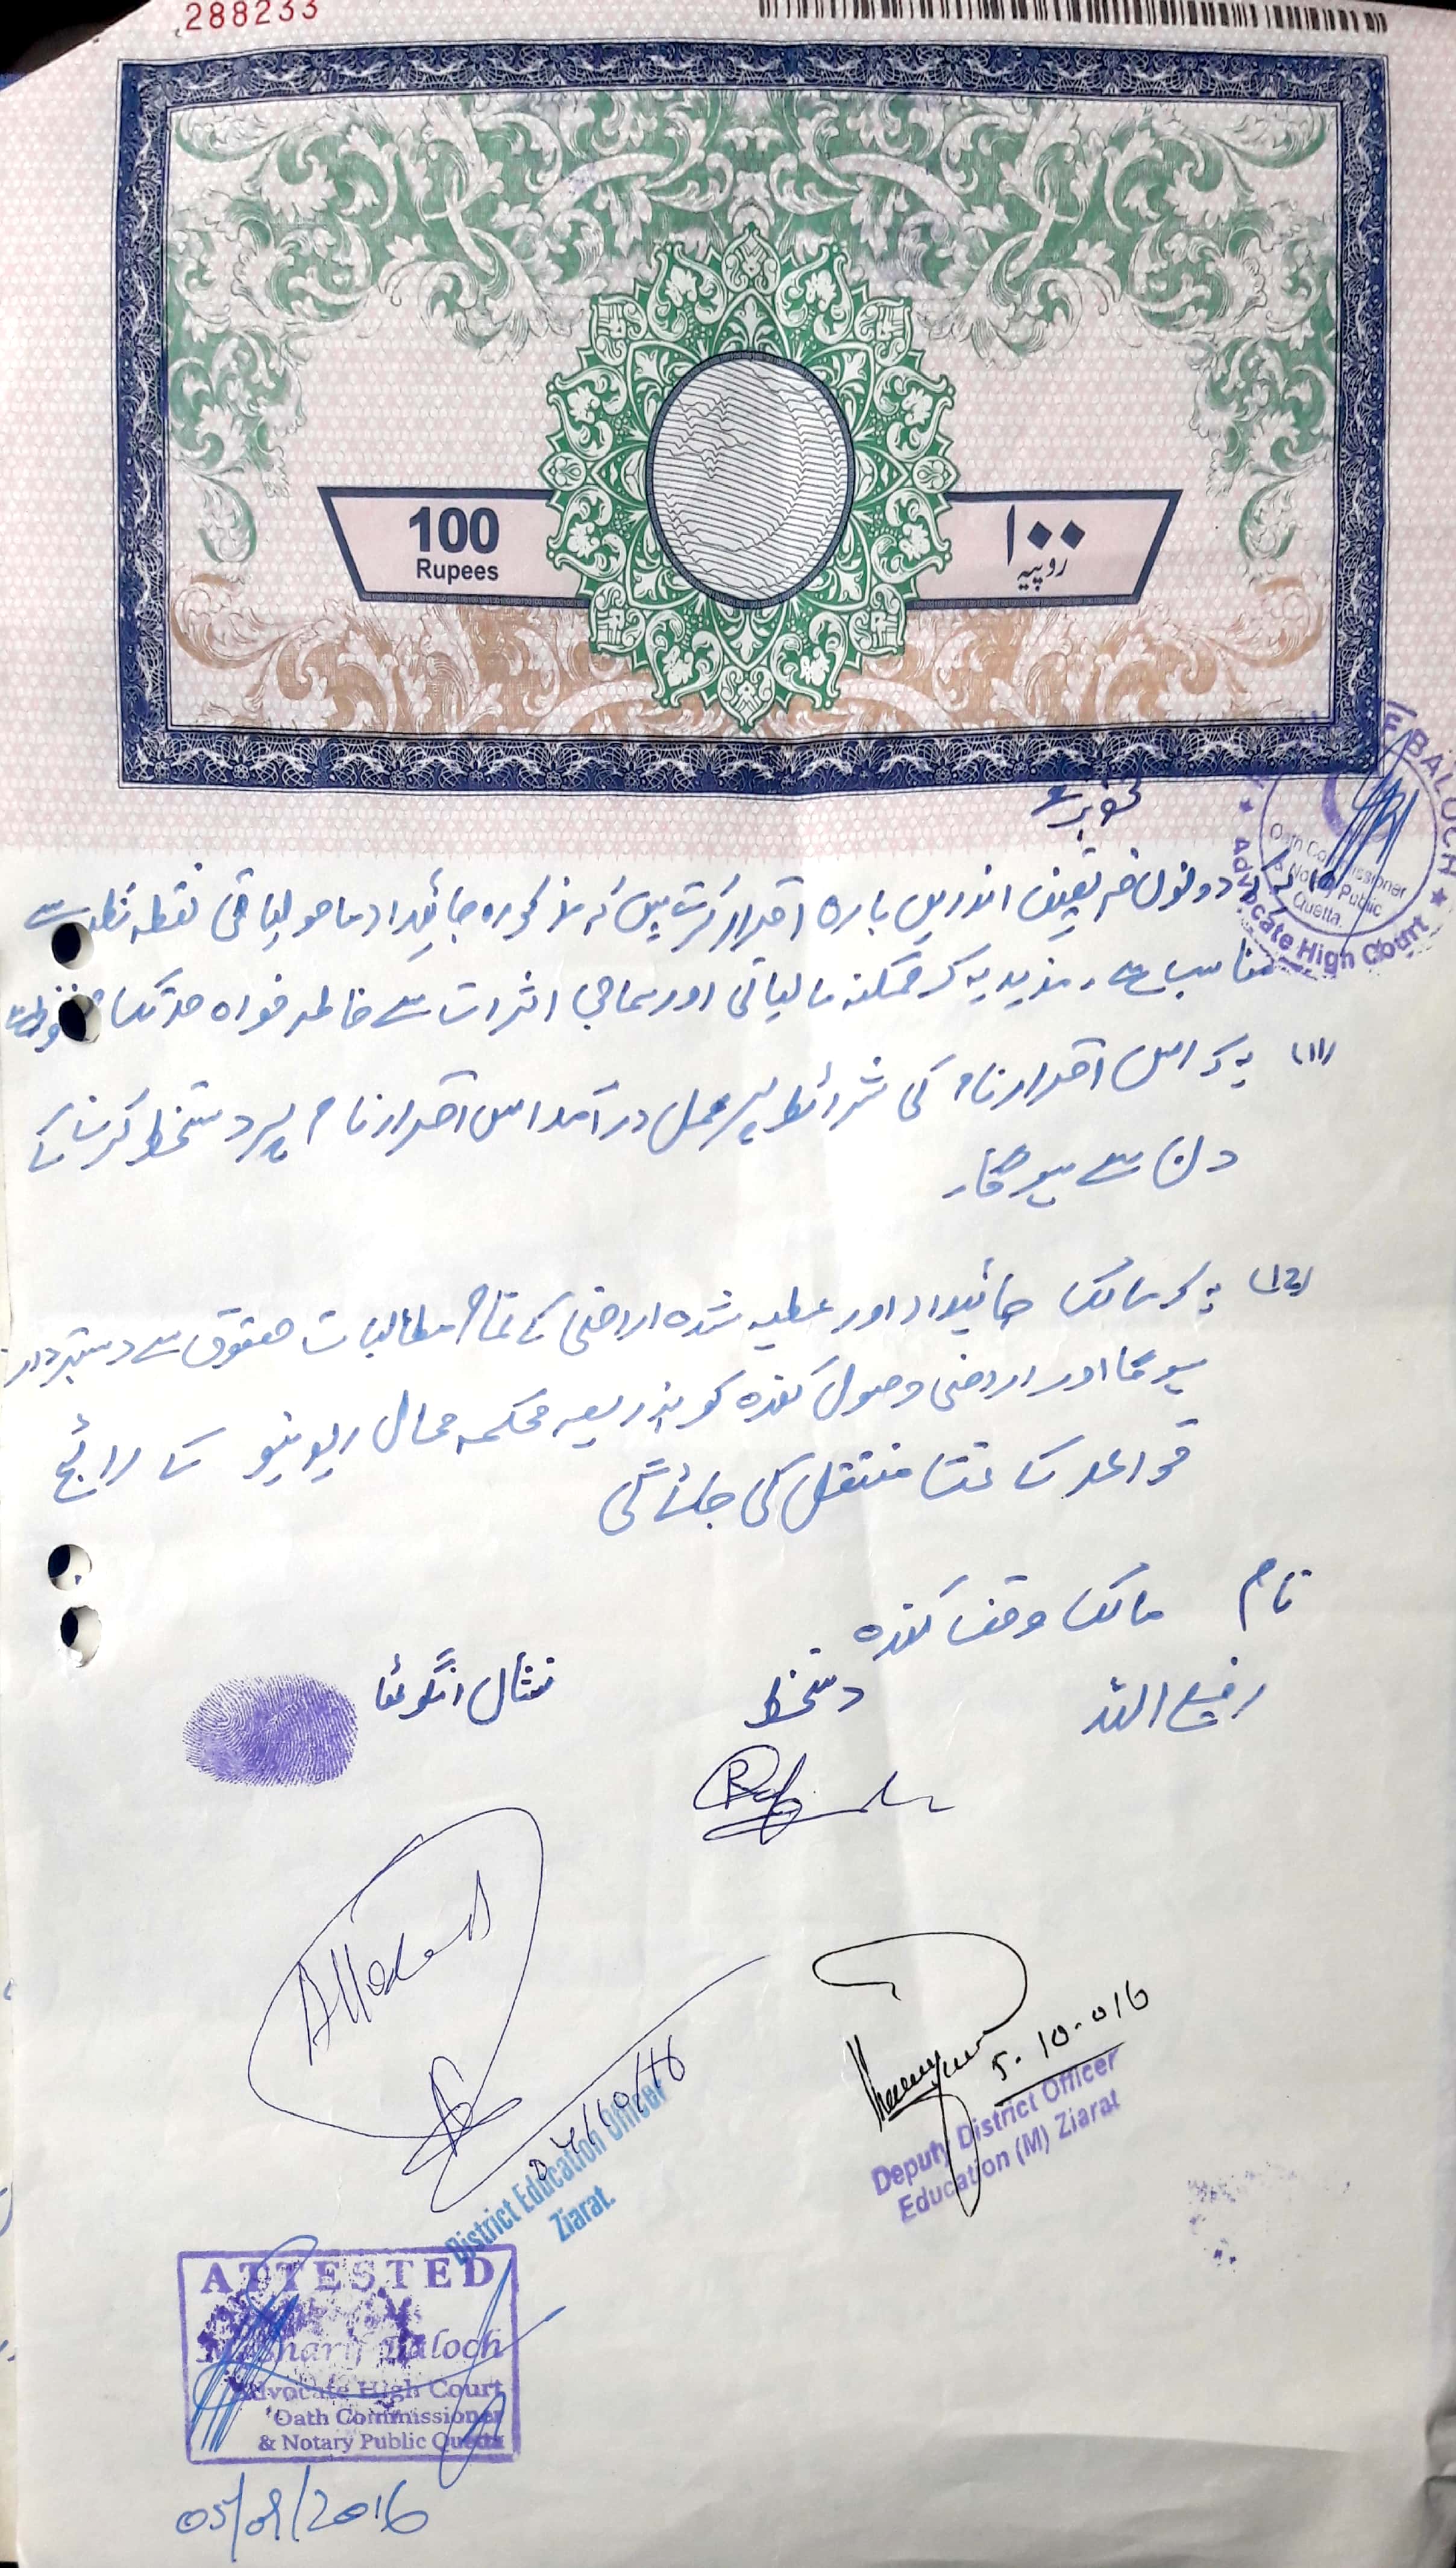 288233
100
Rupees
۱۰۰
روپیہ
BALUCH
Oath Commissioner
Notary Public
Quetta
Advocate High Court
دونوں فریقین اندریں بارہ اقرار کرتے ہیں کہ مذکورہ جائیداد ماحولیاتی نقطہ نظر سے
مناسب ہے۔ مزید یہ کہ ممکنہ مالیاتی اور سماجی اثرات سے خاطر خواہ حد تک
(11) یہ کہ اس اقرار نامہ کی شرائط پر عمل درآمد اس اقرار نامہ پر دستخط کرنے کے
دن سے ہو گا۔
(12) یہ کہ مالک جائیداد اور عطیہ شدہ اراضی کے تمام مطالبات حقوق سے دستبردار
ہو گا اور اراضی وصول کنندہ کو بذریعہ محکمہ محال ریونیو کے رائج
قواعد کے تحت منتقل کی جائے گی
نام مالک وقف کنندہ
رفیع اللہ دستخط نشان انگوٹھا
Attested
5.10.016
Deputy District Officer
Education (M) Ziarat
District Education Officer
Ziarat.
ATTESTED
Baloch
Advocate High Court
Oath Commissioner
& Notary Public Quetta